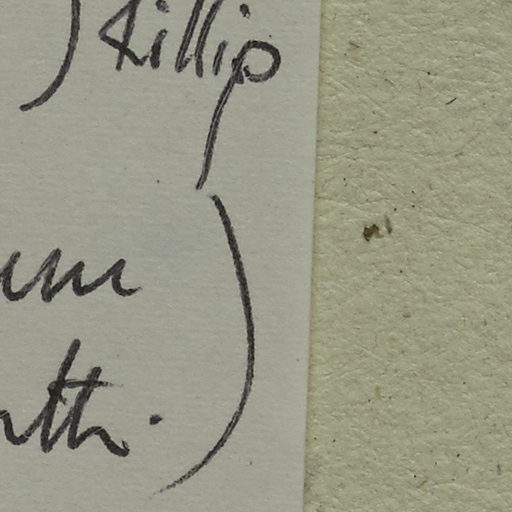 ) Killip
um
nth. )